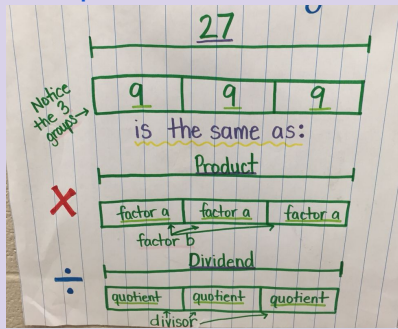 27
9 9 9
Notice
the 3
groups→
is the same as:
Product
×
factor a factor a factor a
factor b
Dividend
÷
quotient quotient quotient
divisor